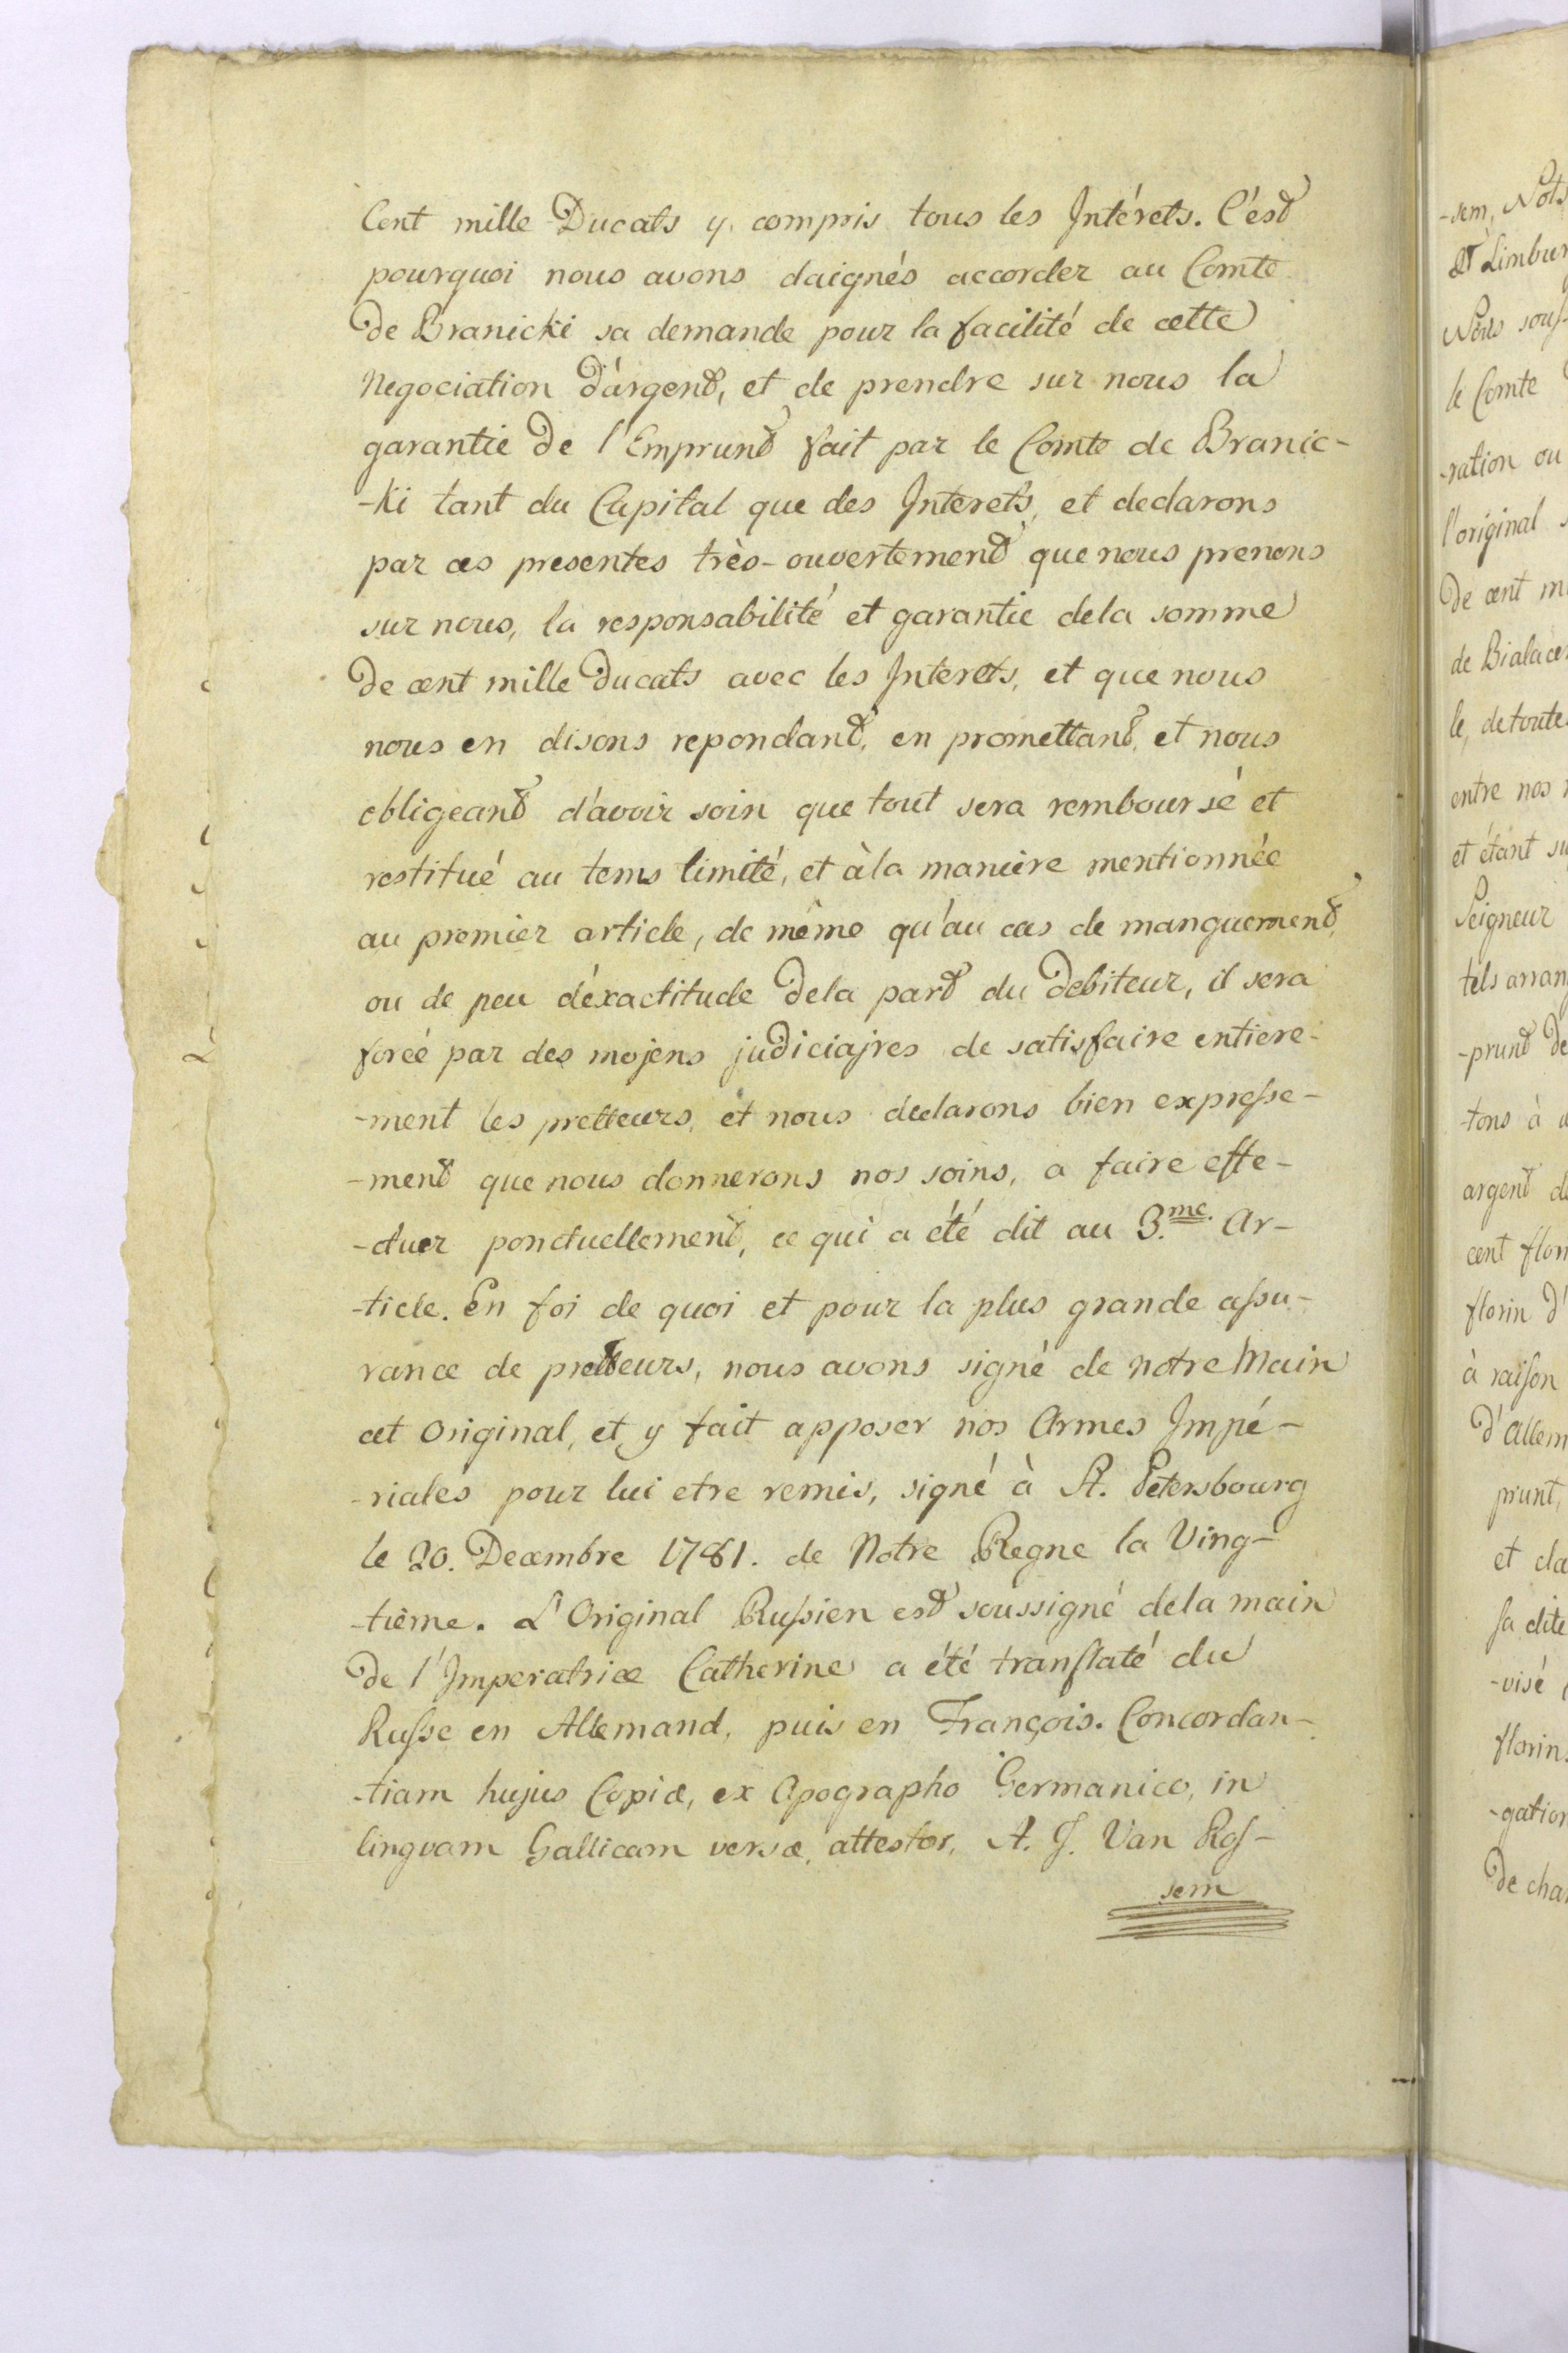 Cent mille Ducats y compris tous les Intérets. C'ést
pourquoi nous avons daignés accorder au Comte
de Branicki sa demande pour la facilité de cette
Negociation d'àrgent, et de prendre sur nous la
garantie de l'Emprunt fait par le Comte de Branic-
-ki tant du Capital que des Interets, et declarons
par ces presentes très-ouvertement que nous prenons
sur nous, la responsabilité et garantie dela somme
de cent mille Ducats avec les Interets, et que nous
nous en disons repondant, en promettant, et nous
obligeant d'avoir soin que tout sera remboursé et
restitué au tems limité, et àla maniere mentionnée
au premier article, de même qu'au cas de manquement,
ou de peu d'éxactitude dela part du Debiteur, il sera
forcé par des mojens judiciajres de satisfaire entiere-
-ment les pretteurs, et nous declarons bien expresse-
-ment que nous donnerons nos soins, a faire effe-
-ctuer ponctuellement, ce qui a été dit au 3.me. Ar-
-ticle. En foi de quoi et pour la plus grande assu-
rance de pretteurs, nous avons signé de notre Main
cet Original, et y fait apposer nos Armes Impé-
-riales pour lui etre remis, signé à St. Petersbourg
le 20. Decembre 1781. de Notre Regne la Ving-
-tième. L'Original Russien est soussigné dela main
de l'Imperatrice Catherine a été translaté du
Russe en Allemand, puis en François. Concordan-
-tiam hujus Copiæ, ex Apographo Germanico, in
linguam Gallicam versæ, attestor, A. J. Van Ros-
sem
-sem, Nots
et Limbur
Nous sous-
le Comte
-ration ou
l'original
de cent m
de Bialace
le, de toute
entre nos
et étant su
Seigneur
tels arran
-prunt de
-tons à
argent d
cent flor
florin d'
à raison
d'Allem
prunt,
et cla
sa dite
-visé
florins
-gation
de cha